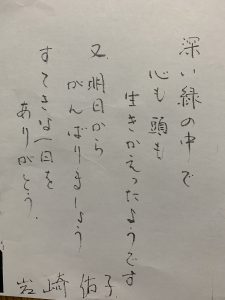 深い緑の中で
心も頭も
生きかえったようです
又、明日から
がんばりましょう
すてきな一日を
ありがとう、
岩崎佑子